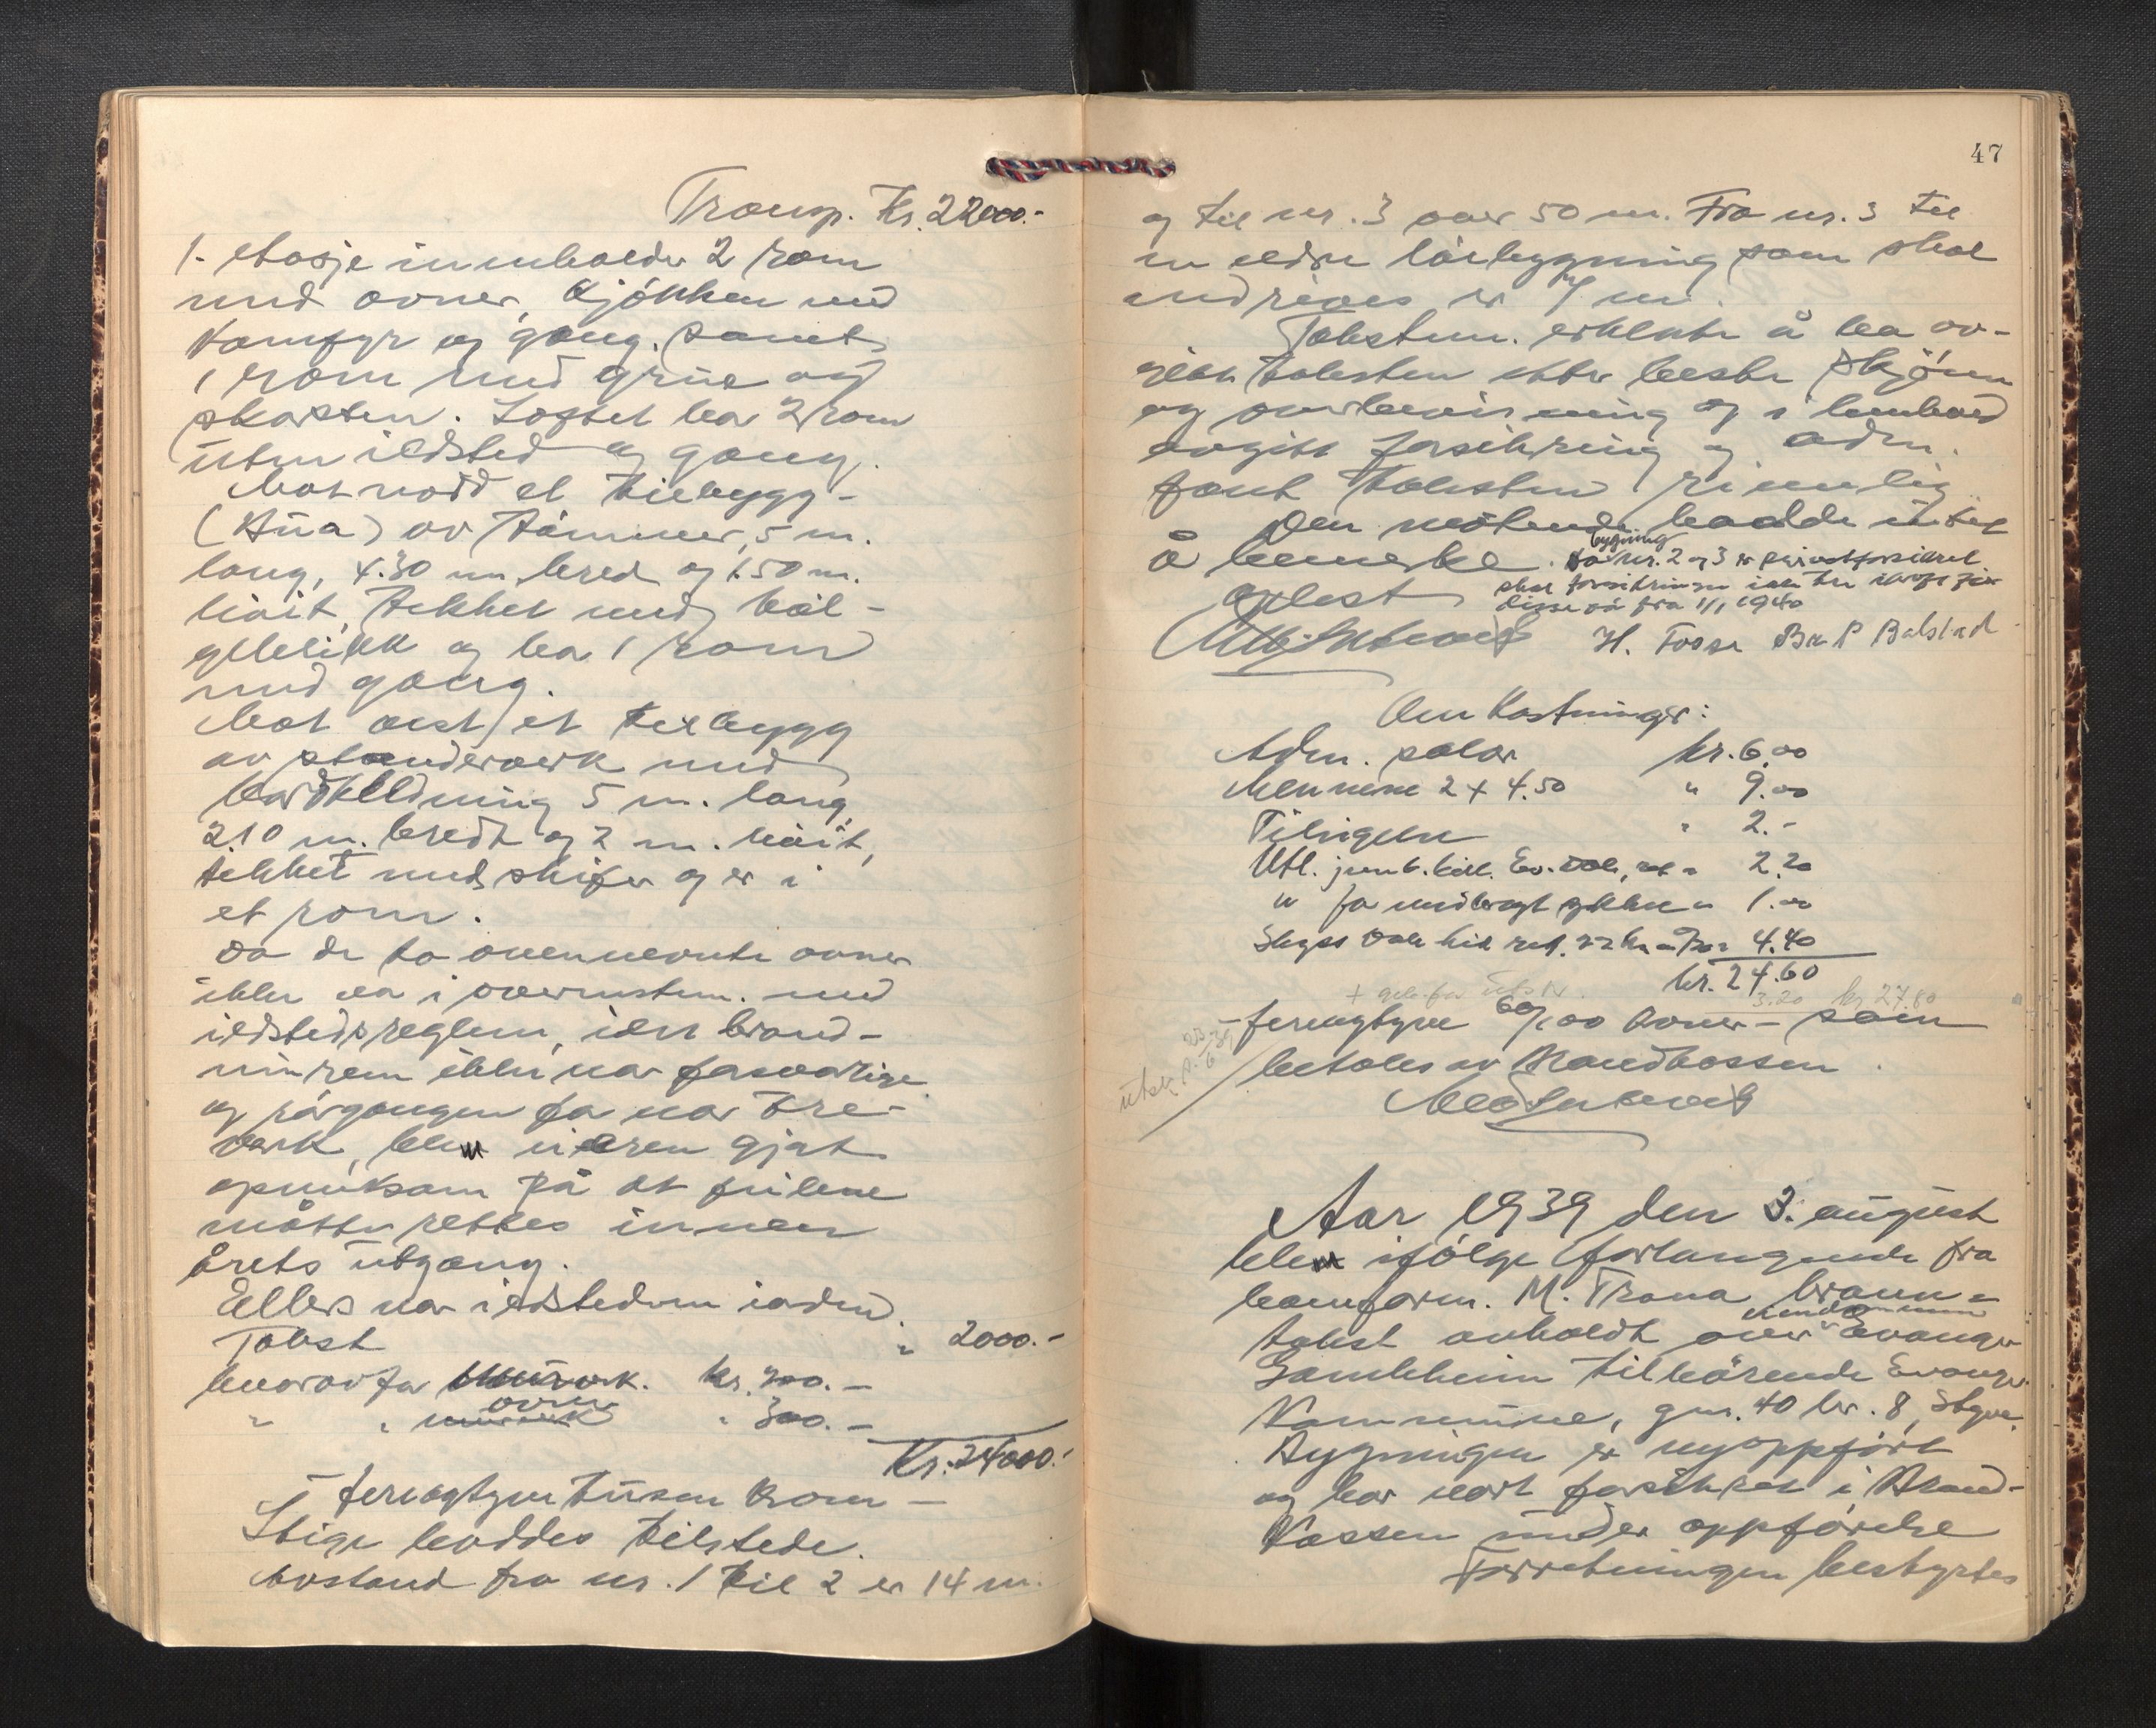 Transp. Kr. 22000.-
1. etasje inneholder 2 rom
med ovner, kjökken med
komfyr og gang, samt
1 rom med grue og
skorsten. Loftet har 2 rom
uten ildsted og gang.
Mot nord et tilbygg -
(Bua) av tömmer, 5 m.
lang, 4.30 m. bred og 1.50 m.
höit, tekket med böl-
geblikk og har 1 rom
med gang.
Mot vest et tilbygg
av standerverk med
bordkledning 5 m. lang,
2.10 m. bredt og 2 m. höit,
tekket med skifer og er i
et rom.
Da de to ovennevnte ovner
ikke var i overenstem. med
ildstedsreglem, idet brand-
muren ikke var forsvarlig
og rörgangen for nær tre-
verk, blev eieren gjort
opmerksom på at feilene
måtte rettes innen
årets utgang.
Ellers var ildstedene i orden.
Takst " 2000.-
hvorav for murverk. kr. 700.-
" " ovner " 300.-
Kr. 24000.-
- fireogtyve tusen kroner -
Stige havdes tilstede.
Avstand fra nr. 1 til 2 er 14 m.
47
og til nr. 3 over 50 m. Fra nr. 3 til
en eldre löebygning som skal
nedrives er 7 m.
Takstm. erklærte å ha av-
gitt taksten efter beste skjönn
og overbevisning og i henhold
avgitt forsikring og adm.
fant taksten rimelig.
Den mötende hadde intet
å bemerke. Da bygning nr. 2 og 3 er privatforsikret
skal forsikringen ikke tre i kraft for
disse før fra 1/1 1940
Oplest
H. Fosse Br. P Balstad
Omkostninger:
Adm. salær kr. 6.00
Mennene 2 x 4.50 " 9.00
Tilsigelse " 2.-
Utl. jernb. bill. Ev. - Dale, ret " 2.20
" for medbragt sykkel " 1.00
Skyss Dale hit ret. 22 km a 20 " 4.40
kr. 24.60
+ geb. for utskr. 3.20 kr 27.80
- fireogtyve 60/100 kroner - som
betales av Brandkassen.
Aar 1939 den 3. august
blev ifölge forlangende fra
baneform. M. Trana brann-
takst avholdt over eiendommen Evanger
Gamleheim tilhörende Evanger
Kommune, gnr. 40 br. 8, Styve.
Bygningen er nyoppfört
og har vært forsikret i Brand-
kassen under oppförelse
Forretningen bestyrtes